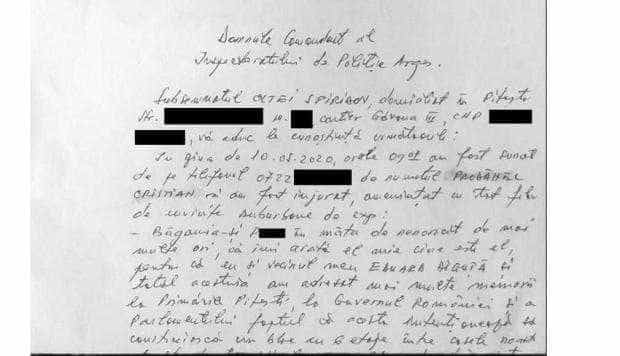 Domnule Comandant al
Inspectoratului de Poliție Argeș.
Subsemnatul OLTEI SPIRIDON, domiciliat în Pitești
str. nr. cartier Găvana III, CNP
, vă aduc la cunoștință următoarele:
În ziua de 10.05.2020, orele 0901 am fost sunat
de pe telefonul 0722 de numitul
CRISTIAN că am fost injurat, amenințat cu tot felu
de cuvinte suburbane de exp:
- Băgamia-și în măta de nenorocit de mai
multe ori, că îmi arată el mie cine este el,
pentru că eu și vecinul meu și
tatăl acestuia am adresat mai multe memorii
la Primăria Pitești, la Guvernul României și a
Parlamentului faptul că acesta intenționează să
construiască un bloc cu 6 etaje între casele